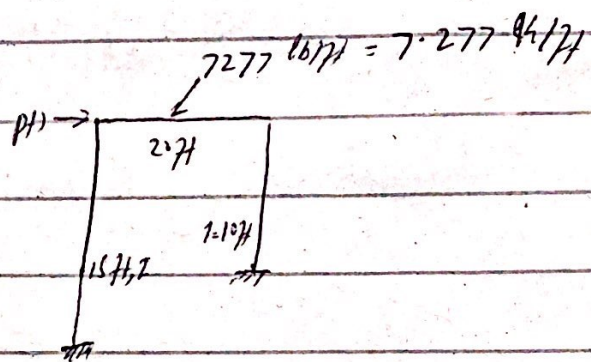 7277 lb/ft = 7.277 k/ft
P(t) →
20ft
I=10ft
15ft, I